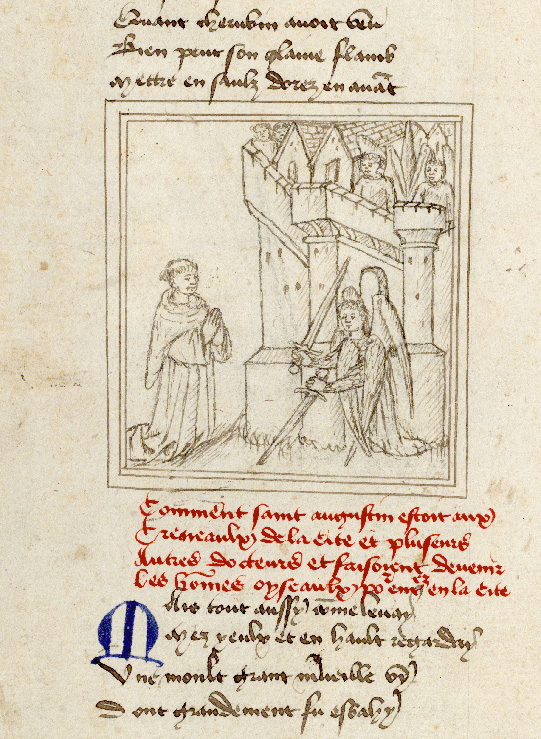 Quant cherubin avoit veu
Bien peut son glaive flamb
Mettre en saulz dorez en avāt
Comment saint augustin estoit aux
Creneaulx de la cite et plusieurs
Autres docteurs et faisoient devenir
Les hōmes oyseaulx po entrer en la cite
Mais tout aussy cōme levay
Mez yeulx et en hault regarday
Une moult grant mveille vy
Dont grandement fu esbahy